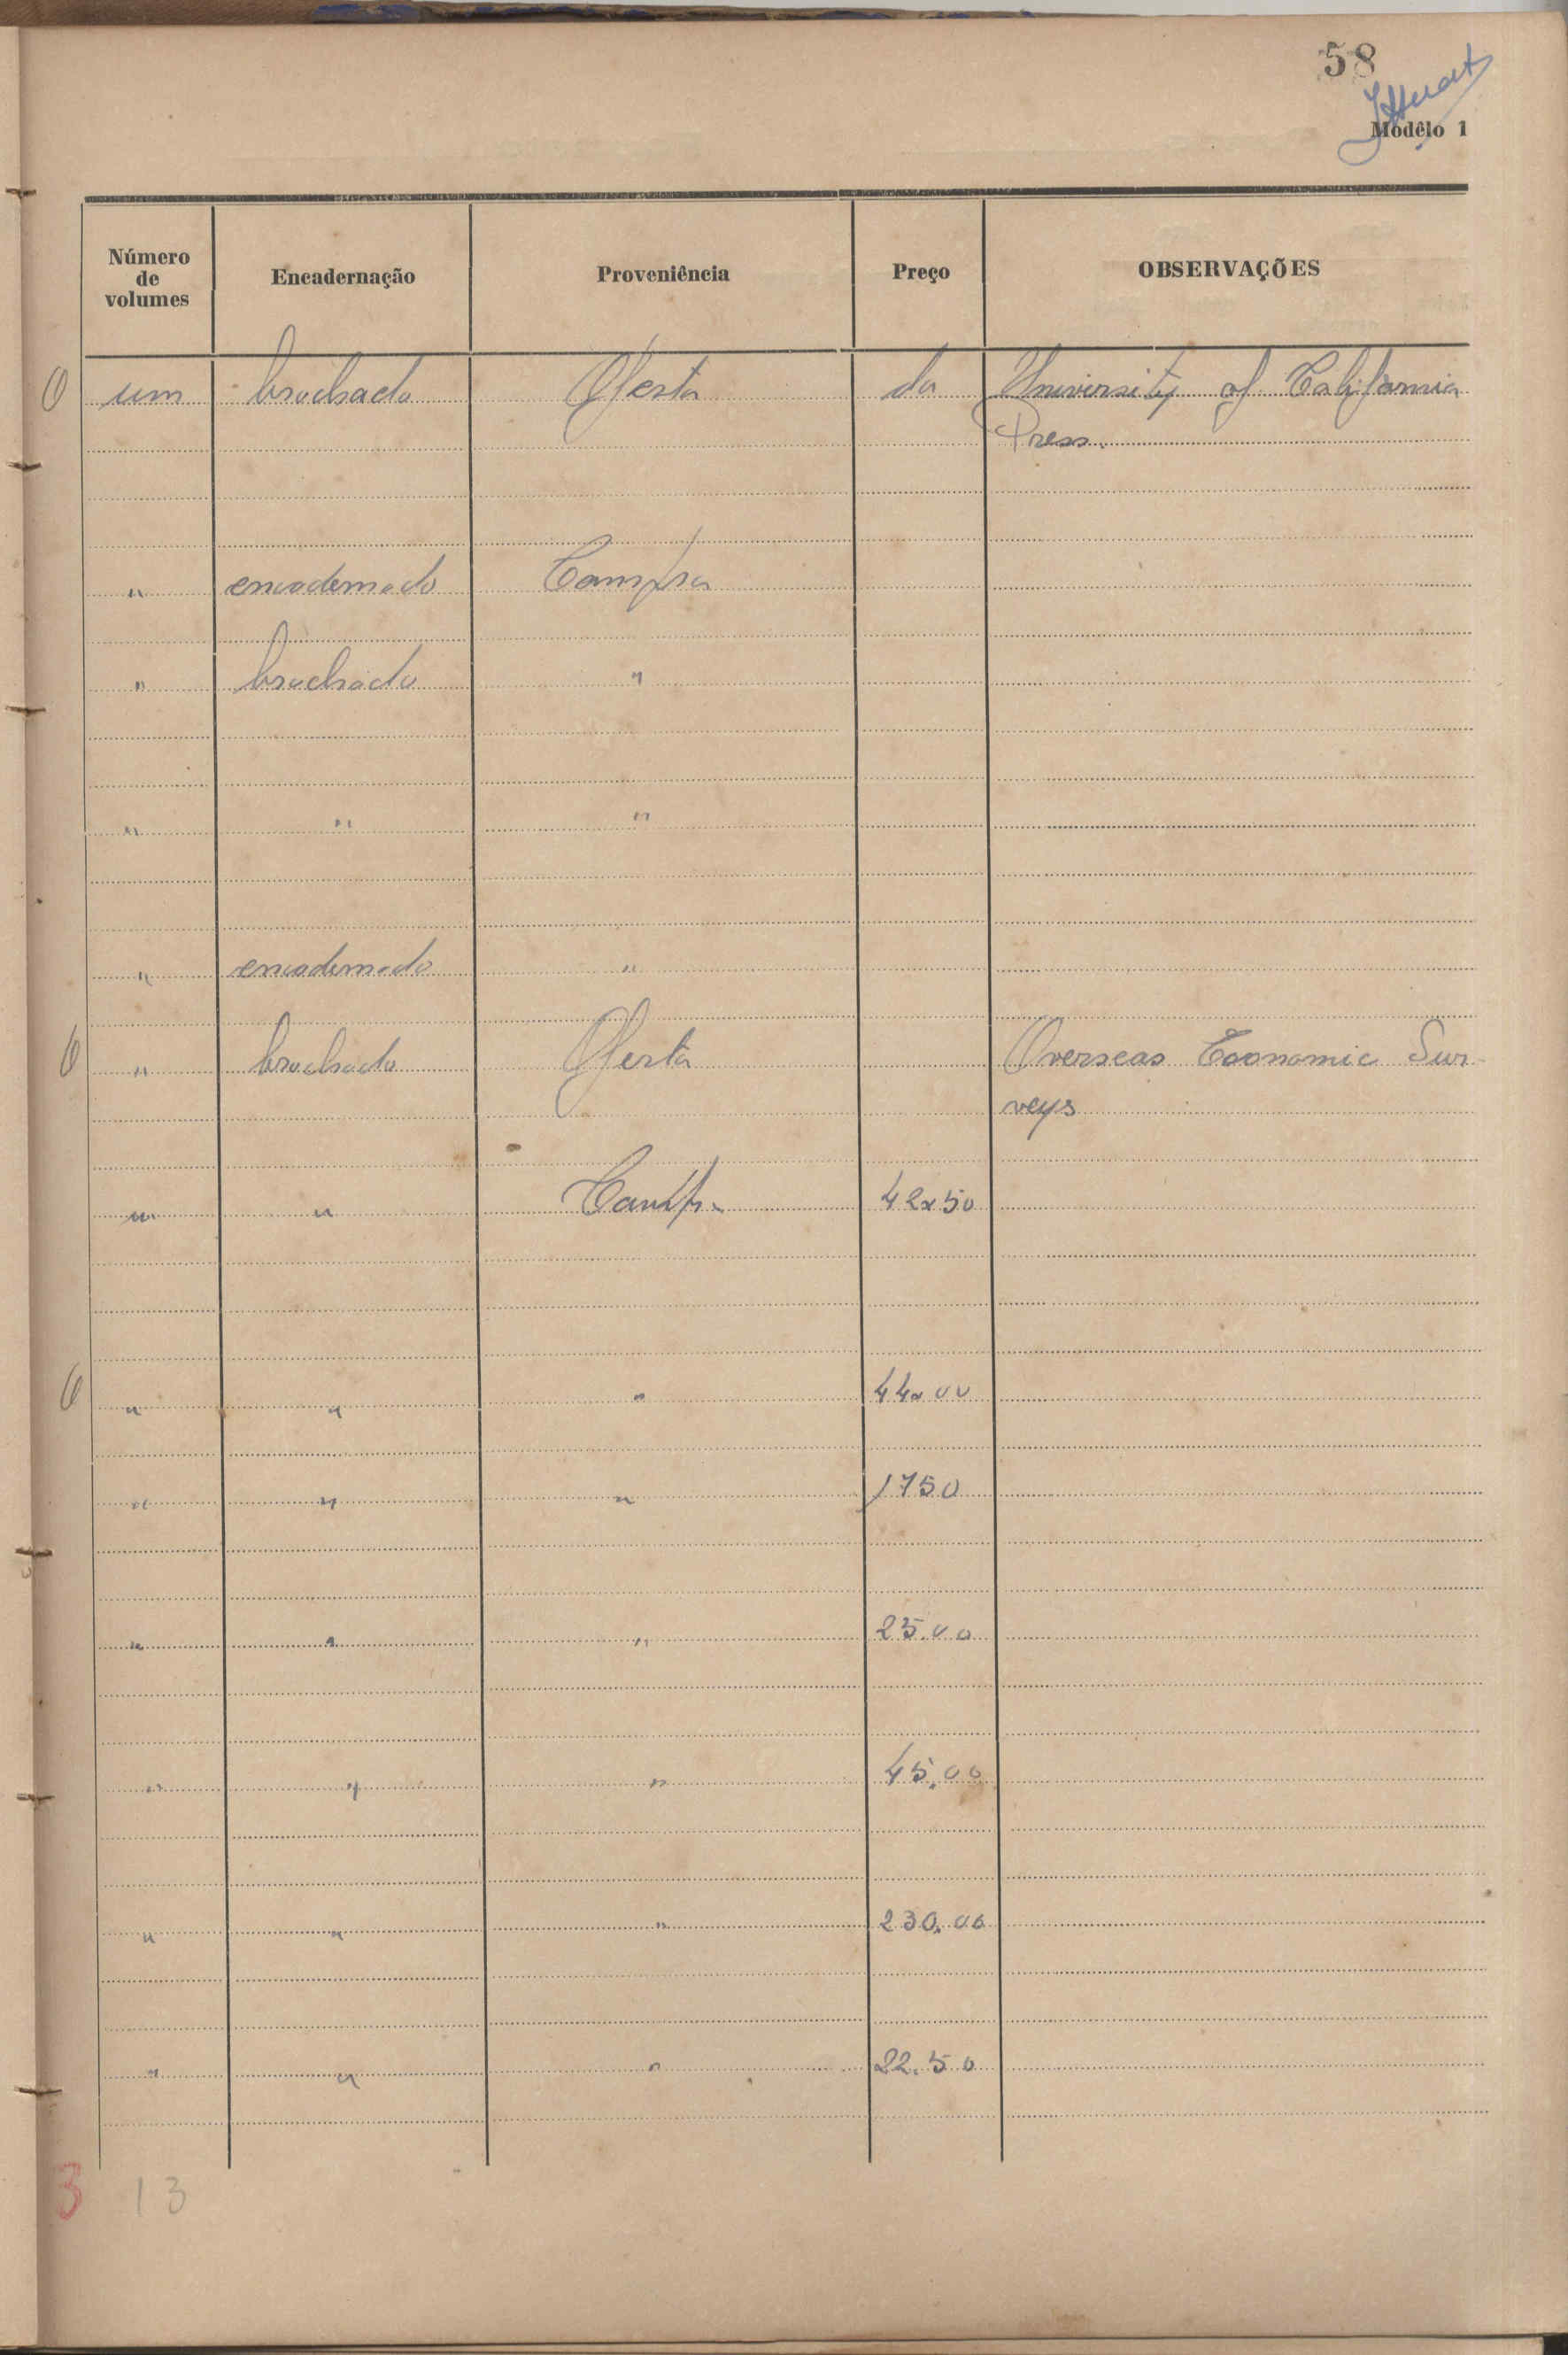 58
Modêlo 1
Número de volumes Encadernação Proveniência Preço OBSERVAÇÕES
O um brochado Oferta da University of California
Press.
" encadernado Compra
" brochado "
" " "
" encadernado "
O " brochado Oferta Overseas Economic Sur-
veys
" " Compra 42x50
O " " " 44x00
" " " 1750
" " " 25.00
" " " 45.00
" " " 230.00
" " " 22.50
3 13